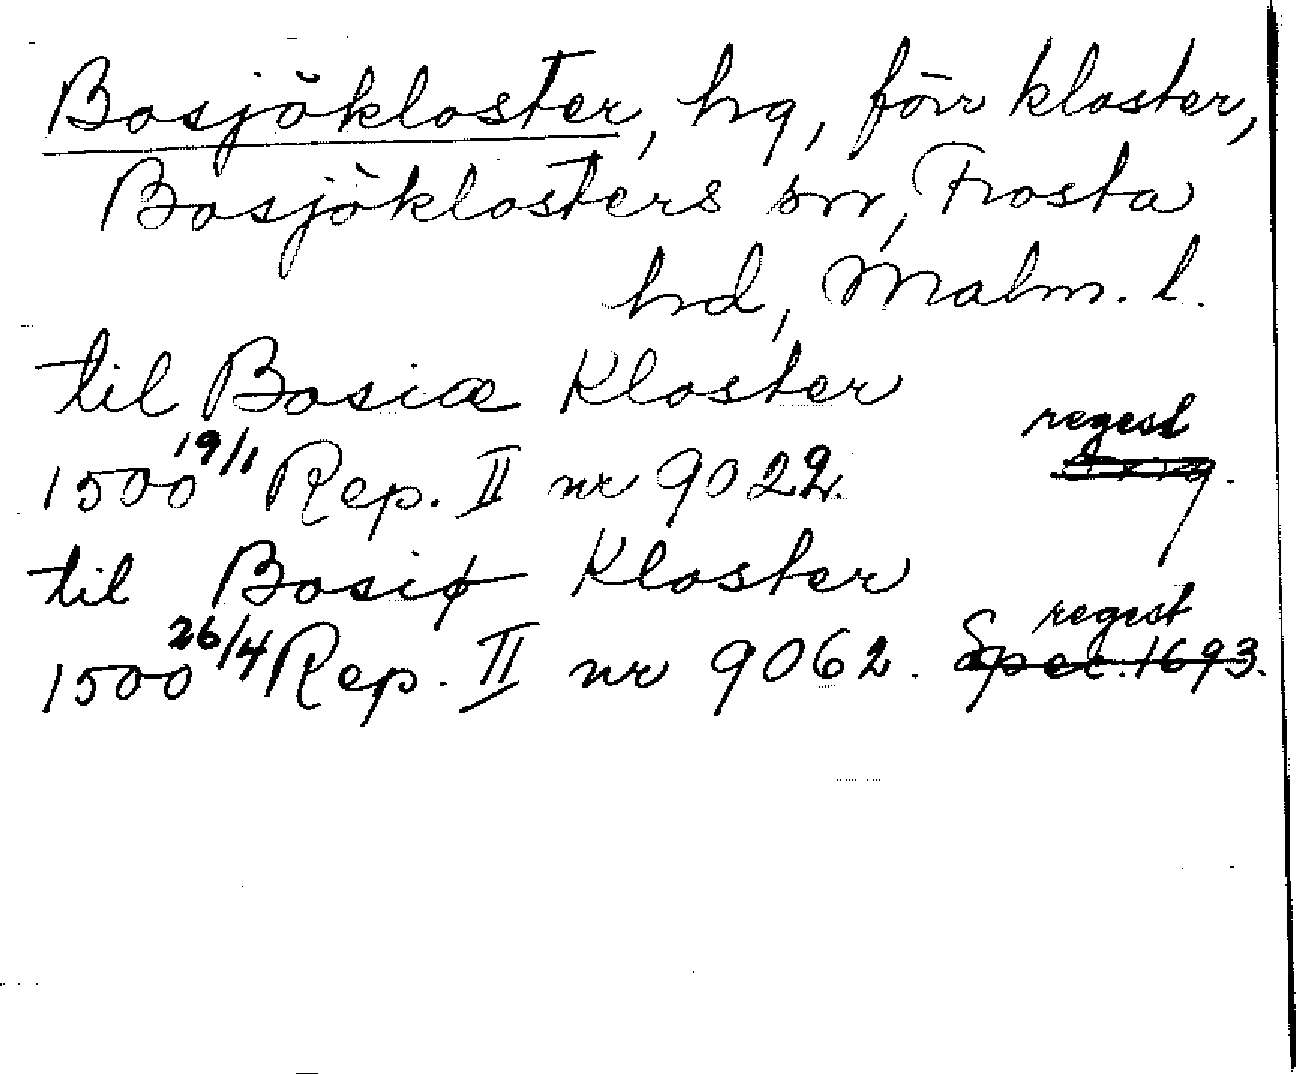 Bosjökloster, hg, förr kloster,
Bosjöklosters sn, Frosta
hd, Malm. l.
til Bosiæ Kloster
regest
1500 19/1 Rep. II nr 9022.
til Bosiø Kloster
regest
1500 26/4 Rep. II nr 9062. Spec. 1693.